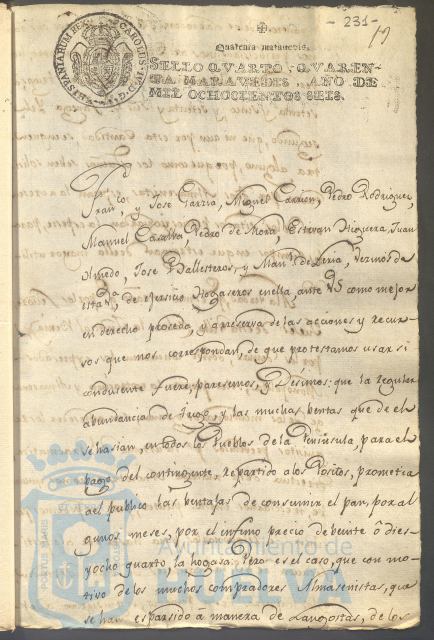 - 231 -
Quarenta maravedis.
SELLO QVARTO, QVAREN-
TA MARAVEDIS, AÑO DE
MIL OCHOCIENTOS SEIS.
CAROLUS IV D G
HISPANIARUM REX
Franco, y Jose Garzia, Miguel Carrion, Pedro Rodriguez,
Manuel Casalba, Pedro de Mora, Estevan Higuera, Juan
Olmedo, Jose Ballesteros, y Manl. de Leria, Vezinos de
esta Va. de exersicio Hogaseros en ella, ante VS como mejor
en derecho proceda, y a reserva de las acciones y recur-
sos que nos correspondan, de que protestamos usar si
condusente fuere, paresemos, y Desimos: que la regular
abundancia de trigo, y las muchas bentas que de el
se hasian, en todos los Pueblos de la Peninsula, para el
pago del contingente, repartido a los Positos, prometia
ael publico las bentajas de consumir el pan, por al
gunos meses, por el infimo precio de beinte ô dies
yocho quarto, la hogasa. Pero es el caso, que con mo-
tivo de los muchos compradores Almasenistas, que
se han esparsido à manera de Langostas, de los
Ayuntamiento de
HUELVA
PORTUS MARIS